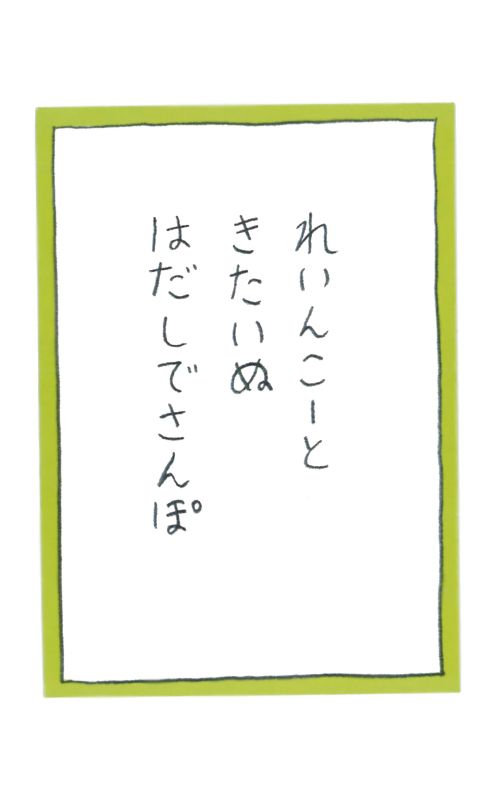 れいんこーと
きたいぬ
はだしでさんぽ